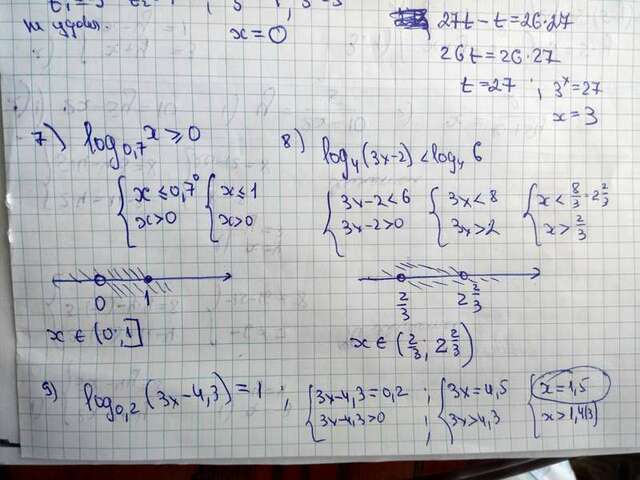 x = 0
27t - t = 26·27
26t = 26·27
t = 27 ; 3ˣ = 27
x = 3
7) log₀,₇ x ⩾ 0
{ x ≤ 0,7⁰ { x ≤ 1
{ x > 0 { x > 0
0 1
x ∈ (0; 1]
8) log₄(3x-2) < log₄ 6
{ 3x-2 < 6 { 3x < 8 { x < 8/3 = 2 2/3
{ 3x-2 > 0 { 3x > 2 { x > 2/3
2/3 2 2/3
x ∈ (2/3; 2 2/3)
9) log₀,₂(3x-4,3) = 1
{ 3x-4,3 = 0,2 ; { 3x = 4,5 { x = 1,5
{ 3x-4,3 > 0 ; { 3x > 4,3 { x > 1,4(3)